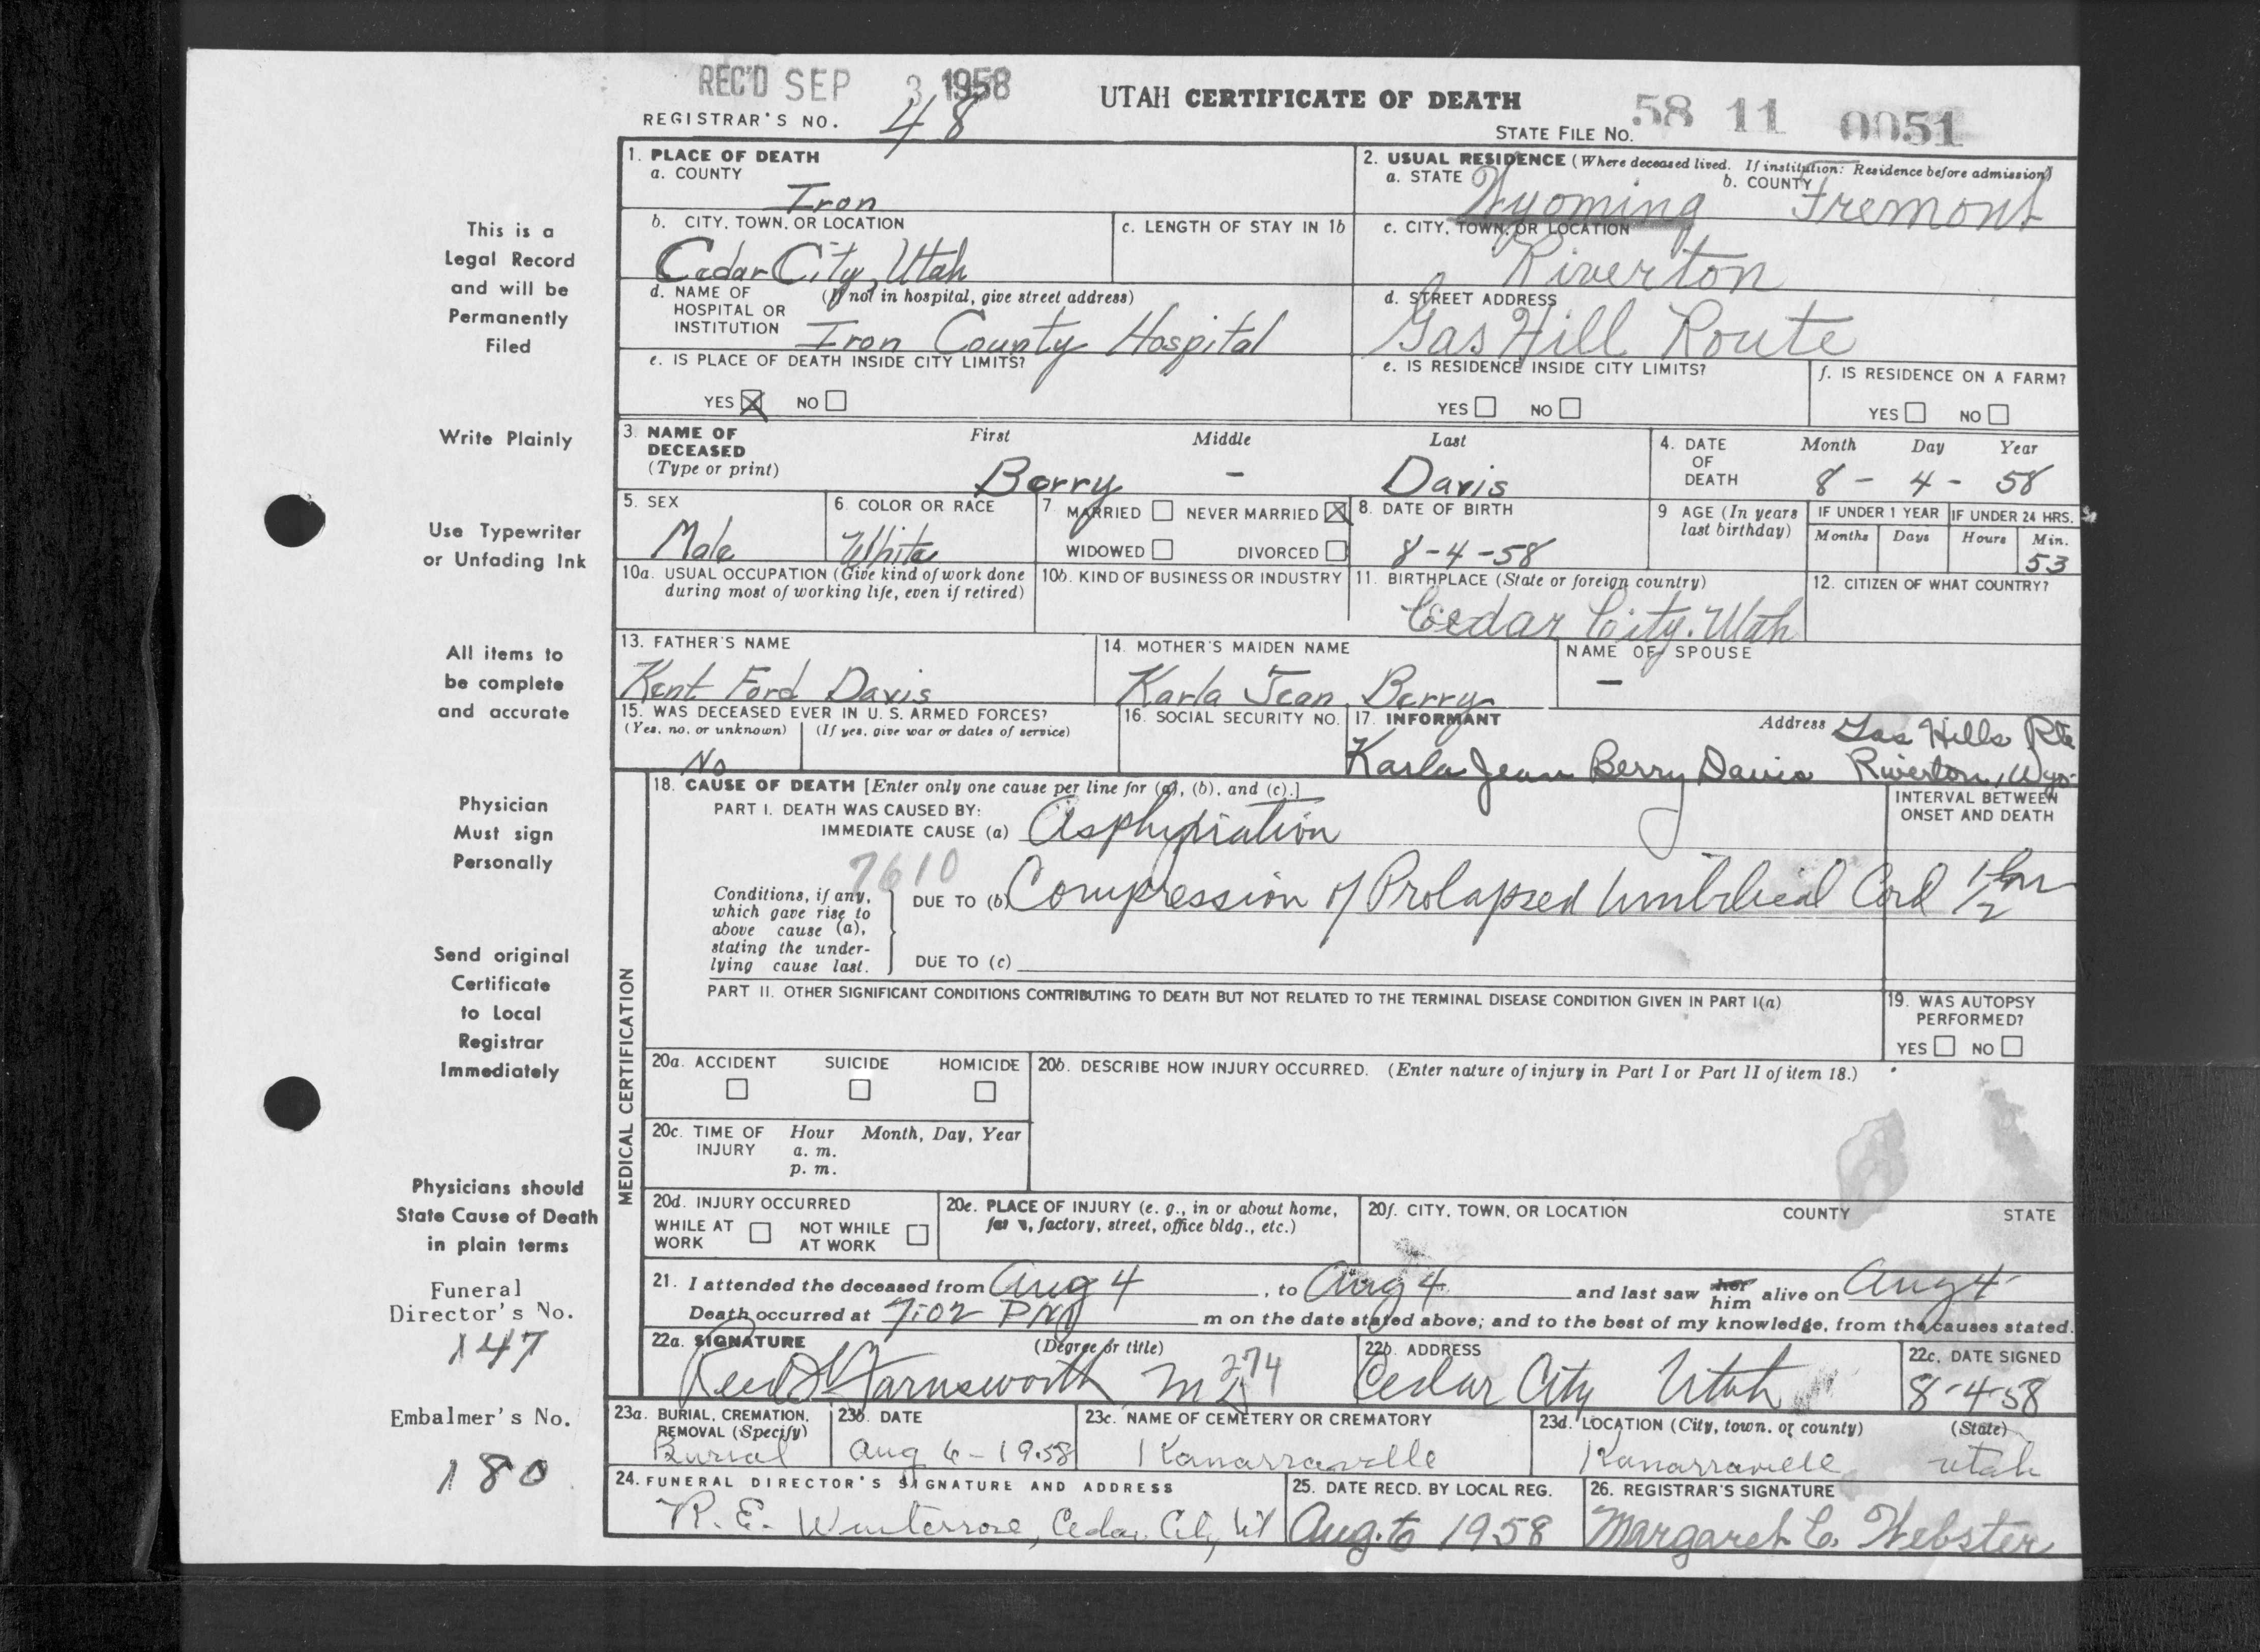 REC'D SEP 3 1958
UTAH CERTIFICATE OF DEATH
REGISTRAR'S NO. 48
STATE FILE NO. 58 11 0051
This is a
Legal Record
and will be
Permanently
Filed
Write Plainly
Use Typewriter
or Unfading Ink
All items to
be complete
and accurate
Physician
Must sign
Personally
Send original
Certificate
to Local
Registrar
Immediately
Physicians should
State Cause of Death
in plain terms
Funeral
Director's No.
147
Embalmer's No.
180
1. PLACE OF DEATH
a. COUNTY
Iron
2. USUAL RESIDENCE (Where deceased lived. If institution: Residence before admission)
a. STATE Wyoming b. COUNTY Fremont
b. CITY, TOWN, OR LOCATION
Cedar City, Utah
c. LENGTH OF STAY IN 1b
c. CITY, TOWN, OR LOCATION
Riverton
d. NAME OF HOSPITAL OR INSTITUTION (If not in hospital, give street address)
Iron County Hospital
d. STREET ADDRESS
Gas Hill Route
e. IS PLACE OF DEATH INSIDE CITY LIMITS?
YES X NO
e. IS RESIDENCE INSIDE CITY LIMITS?
YES NO
f. IS RESIDENCE ON A FARM?
YES NO
3. NAME OF DECEASED (Type or print)
First Middle Last
Berry - Davis
4. DATE OF DEATH Month Day Year
8 - 4 - 58
5. SEX
Male
6. COLOR OR RACE
White
7. MARRIED NEVER MARRIED X
WIDOWED DIVORCED
8. DATE OF BIRTH
8-4-58
9 AGE (In years last birthday)
IF UNDER 1 YEAR
Months Days
IF UNDER 24 HRS.
Hours Min.
53
10a. USUAL OCCUPATION (Give kind of work done during most of working life, even if retired)
10b. KIND OF BUSINESS OR INDUSTRY
11. BIRTHPLACE (State or foreign country)
Cedar City. Utah
12. CITIZEN OF WHAT COUNTRY?
13. FATHER'S NAME
Kent Ford Davis
14. MOTHER'S MAIDEN NAME
Karla Jean Berry
NAME OF SPOUSE
-
15. WAS DECEASED EVER IN U. S. ARMED FORCES?
(Yes, no, or unknown) (If yes, give war or dates of service)
No
16. SOCIAL SECURITY NO.
17. INFORMANT Address
Karla Jean Berry Davis Gas Hills Rte
Riverton, Wyo.
MEDICAL CERTIFICATION
18. CAUSE OF DEATH [Enter only one cause per line for (a), (b), and (c).]
PART I. DEATH WAS CAUSED BY:
IMMEDIATE CAUSE (a) Asphyxiation
7610
INTERVAL BETWEEN
ONSET AND DEATH
Conditions, if any,
which gave rise to
above cause (a),
stating the under-
lying cause last.
DUE TO (b) Compression of Prolapsed Umbilical Cord 1/2 hr
DUE TO (c)
PART II. OTHER SIGNIFICANT CONDITIONS CONTRIBUTING TO DEATH BUT NOT RELATED TO THE TERMINAL DISEASE CONDITION GIVEN IN PART I(a)
19. WAS AUTOPSY
PERFORMED?
YES NO
20a. ACCIDENT SUICIDE HOMICIDE
20b. DESCRIBE HOW INJURY OCCURRED. (Enter nature of injury in Part I or Part II of item 18.)
20c. TIME OF INJURY Hour Month, Day, Year
a. m.
p. m.
20d. INJURY OCCURRED
WHILE AT WORK NOT WHILE AT WORK
20e. PLACE OF INJURY (e. g., in or about home,
farm, factory, street, office bldg., etc.)
20f. CITY, TOWN, OR LOCATION COUNTY STATE
21. I attended the deceased from Aug 4, to Aug 4 and last saw her him alive on Aug 4
Death occurred at 7:02 PM m on the date stated above; and to the best of my knowledge, from the causes stated.
22a. SIGNATURE (Degree or title)
Reed Farnsworth MD 274
22b. ADDRESS
Cedar City Utah
22c. DATE SIGNED
8-4-58
23a. BURIAL, CREMATION, REMOVAL (Specify)
Burial
23b. DATE
Aug 6-1958
23c. NAME OF CEMETERY OR CREMATORY
Kanarraville
23d. LOCATION (City, town, or county) (State)
Kanarraville Utah
24. FUNERAL DIRECTOR'S SIGNATURE AND ADDRESS
R. E. Winterrose, Cedar City, Ut
25. DATE RECD. BY LOCAL REG.
Aug. 6 1958
26. REGISTRAR'S SIGNATURE
Margaret C. Webster